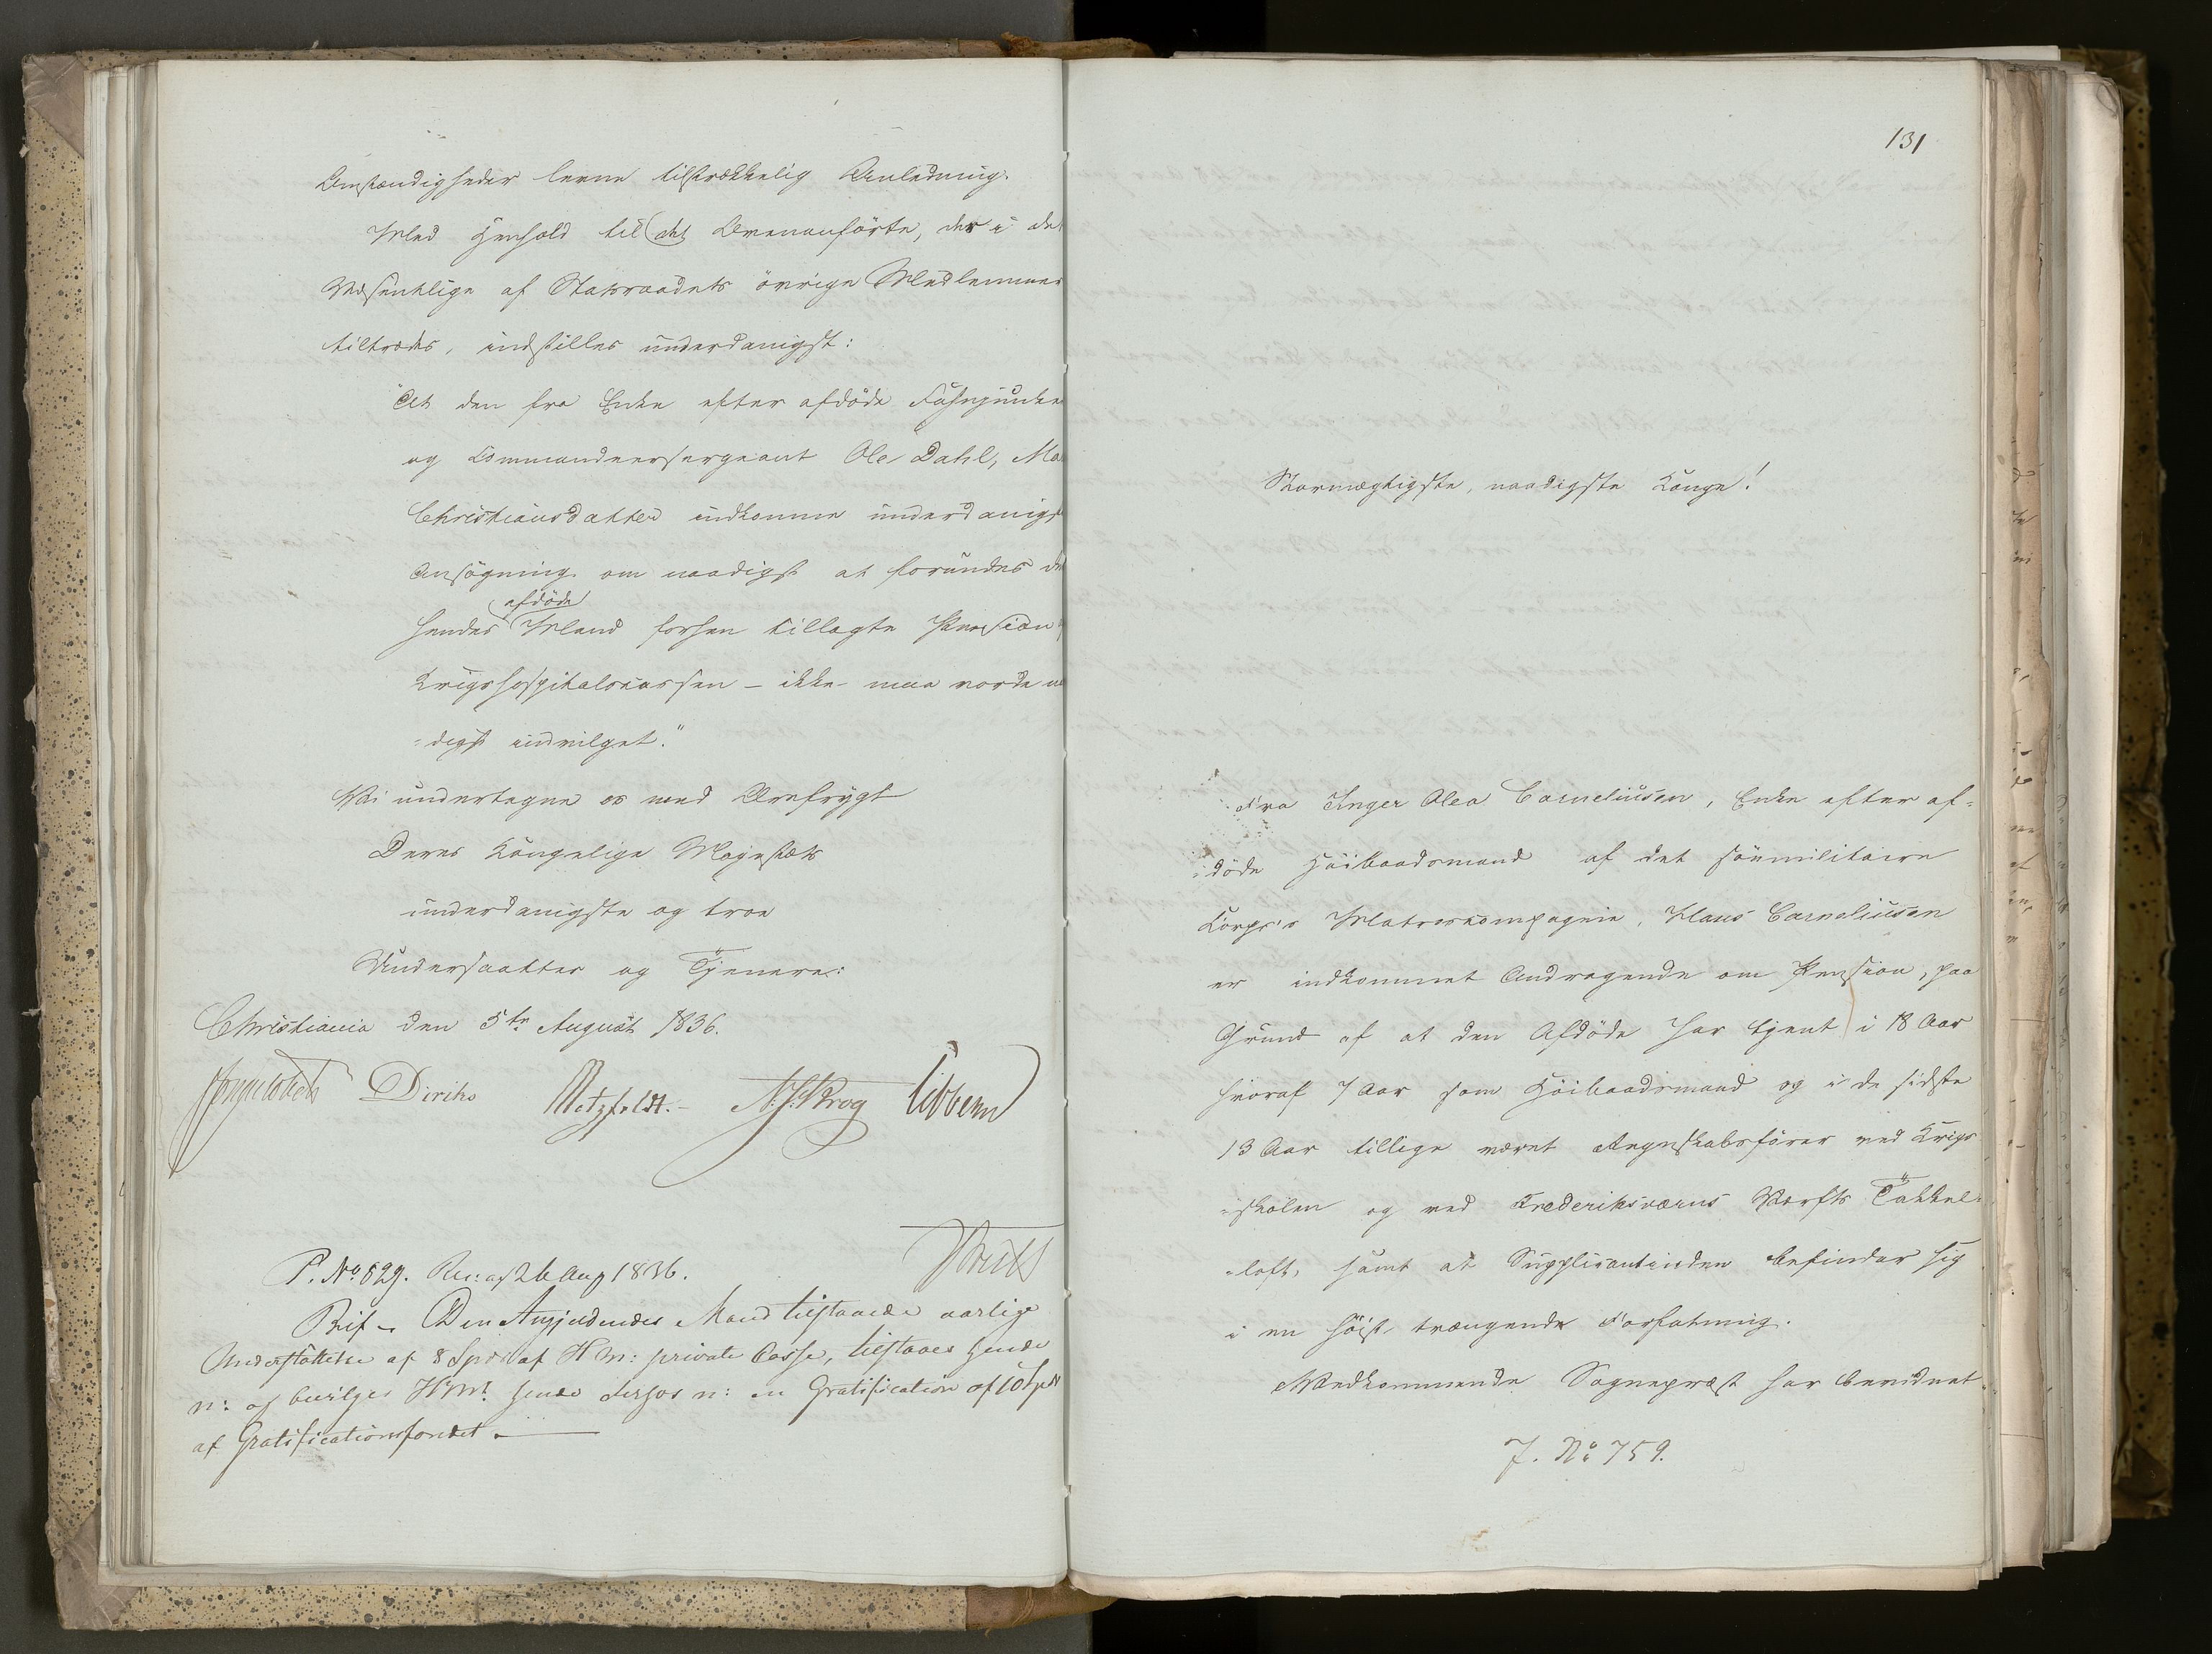 Omstændigheder levne tilstrækkelig Anledning.
Med Henhold til det Ovenanførte, der i det
Væsentlige af Statsraadets övrige Medlemmer
tiltrædes, indstilles underdanigst:
"At den fra Enke efter afdöde Fahnjunker
og Commandeersergeant Ole Dahl,
Christiansdatter indkomne underdanigst
Ansögning om naadigst at forundes
afdöde
hendes Mand forhen tillagte Pension
Krigshospitalscassen - ikke maa vorde
=digst indvilget."
Vi undertegne os med Ærefrygt
Deres Kongelige Majestæts
underdanigste og troe
Undersaatter og Tjenere:
Christiania den 5te August 1836.
Diriks Motzfeldt. - Krog Vibbern
P. No 829. 26 Aug 1836.
Bif - Den Ansjældendes Mand tilstaaede aarlige
Understöttelse af 8 Spd af H M: private Casse, tilstaaes hende
n: og bevilges H M: hende dersos n: en Gratification af 10 Spd
af Gratificationsfondet.
131
Stormægtigste, naadigste Konge!
Fra Inger Olea Corneliussen, Enke efter af=
=döde Höibaadsmand af det söemilitaire
Korps's Matroskompagnie, Hans Corneliussen
er indkommet Andragende om Pension, paa
Grund af at den Afdöde har tjent i 18 Aar
hvoraf 7 Aar som Höibaadsmand og i de sidste
13 Aar tillige været Regnskabsförer ved Krigs
=skolen og ved Frederiksværns Værfts Takkel=
=loft, samt at Supplicantinden befinder sig
i en höist trængende Forfatning.
Vedkommende Sognepræst har bevidnet
J. No 759.